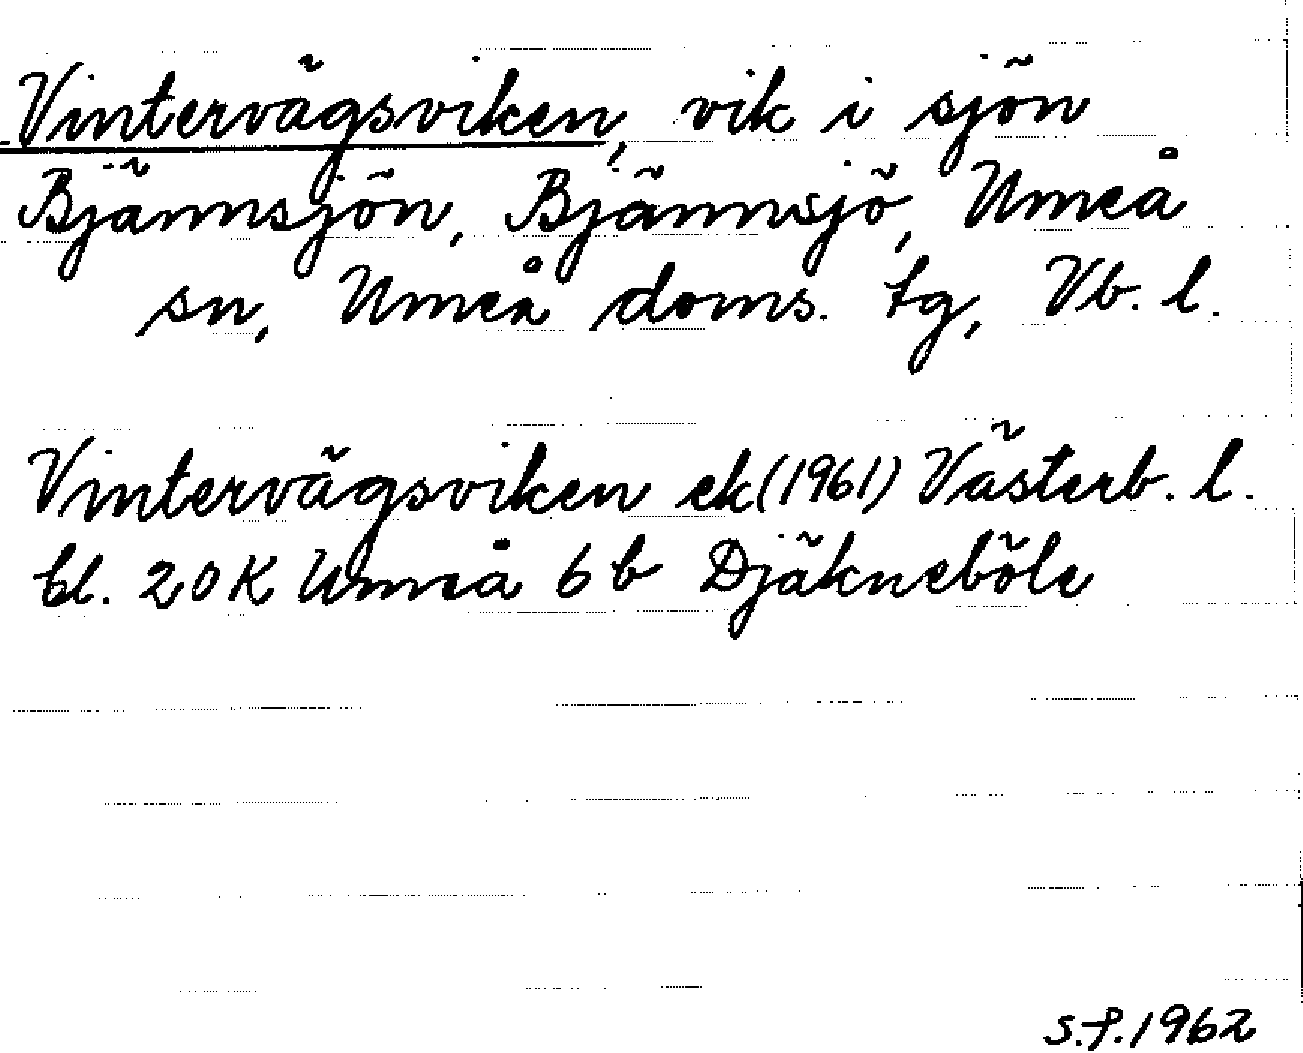 Vintervägsviken, vik i sjön
Bjännsjön, Bjännsjö, Umeå
sn, Umeå doms. tg, Vb. l.
Vintervägsviken ek (1961) Västerb. l.
bl. 20 K Umeå 6 b Djäkneböle
S.F. 1962